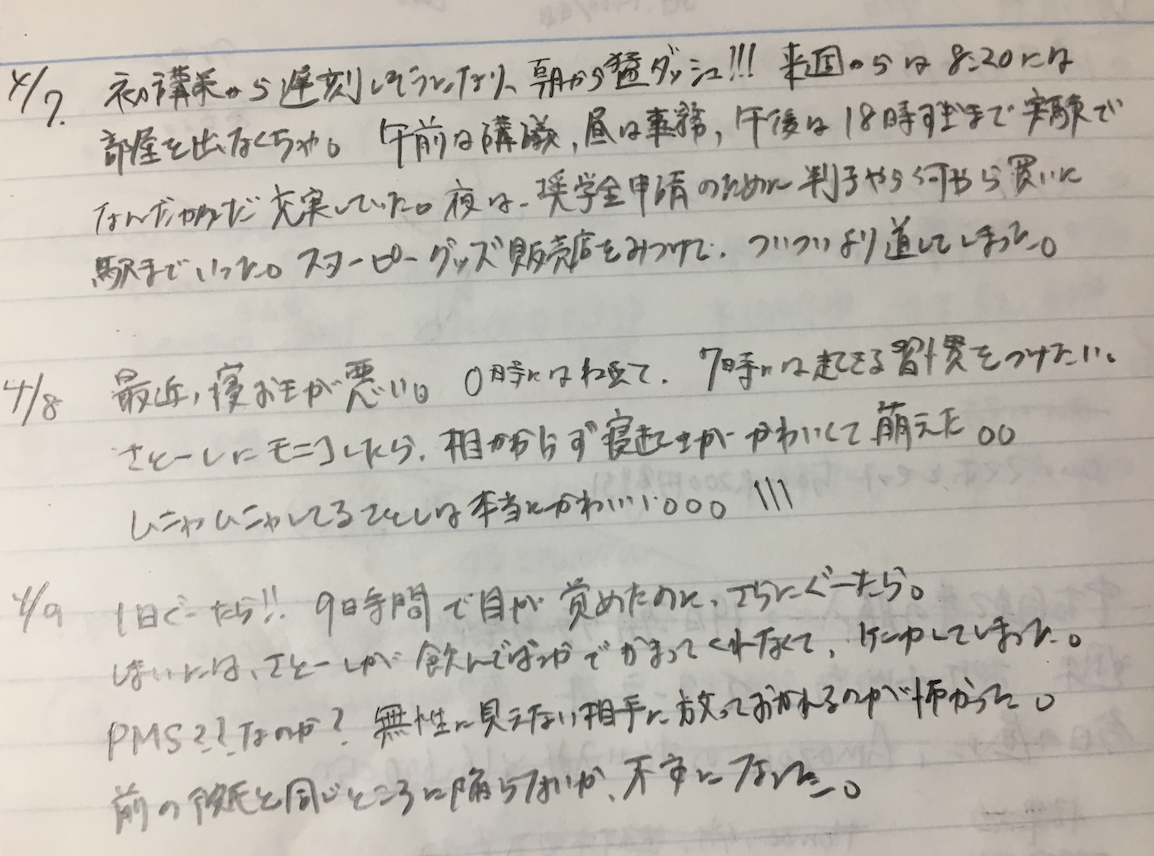 4/7. 初講義から遅刻しそうになり、朝から猛ダッシュ!!! 来週からは8:20には
部屋を出なくちゃ。午前は講議,昼は事務,午後は18時すぎまで実験で
なんだかんだ充実していた。夜は、奨学金申請のために判子やら何やら買いに
駅までいった。スヌーピーグッズ販売店をみつけて、ついついより道してしまった。
4/8 最近,寝おきが悪い。0時にはねて、7時には起きる習慣をつけたい。
さとーしにモニコしたら、相かわらず寝起きがかわいくて萌えた。。
ムニャムニャしてるさとしは本当にかわいい。。。!!!
4/9 1日ぐーたら!! 9時間で目が覚めたのに、さらにぐーたら。
しまいには、さとーしが飲んでばっかでかまってくれなくて、ケンカしてしまった。
PMS??なのか? 無性に見えない相手に放っておかれるのが怖かった。
前の彼氏と同じところに陥らないか、不安になった。